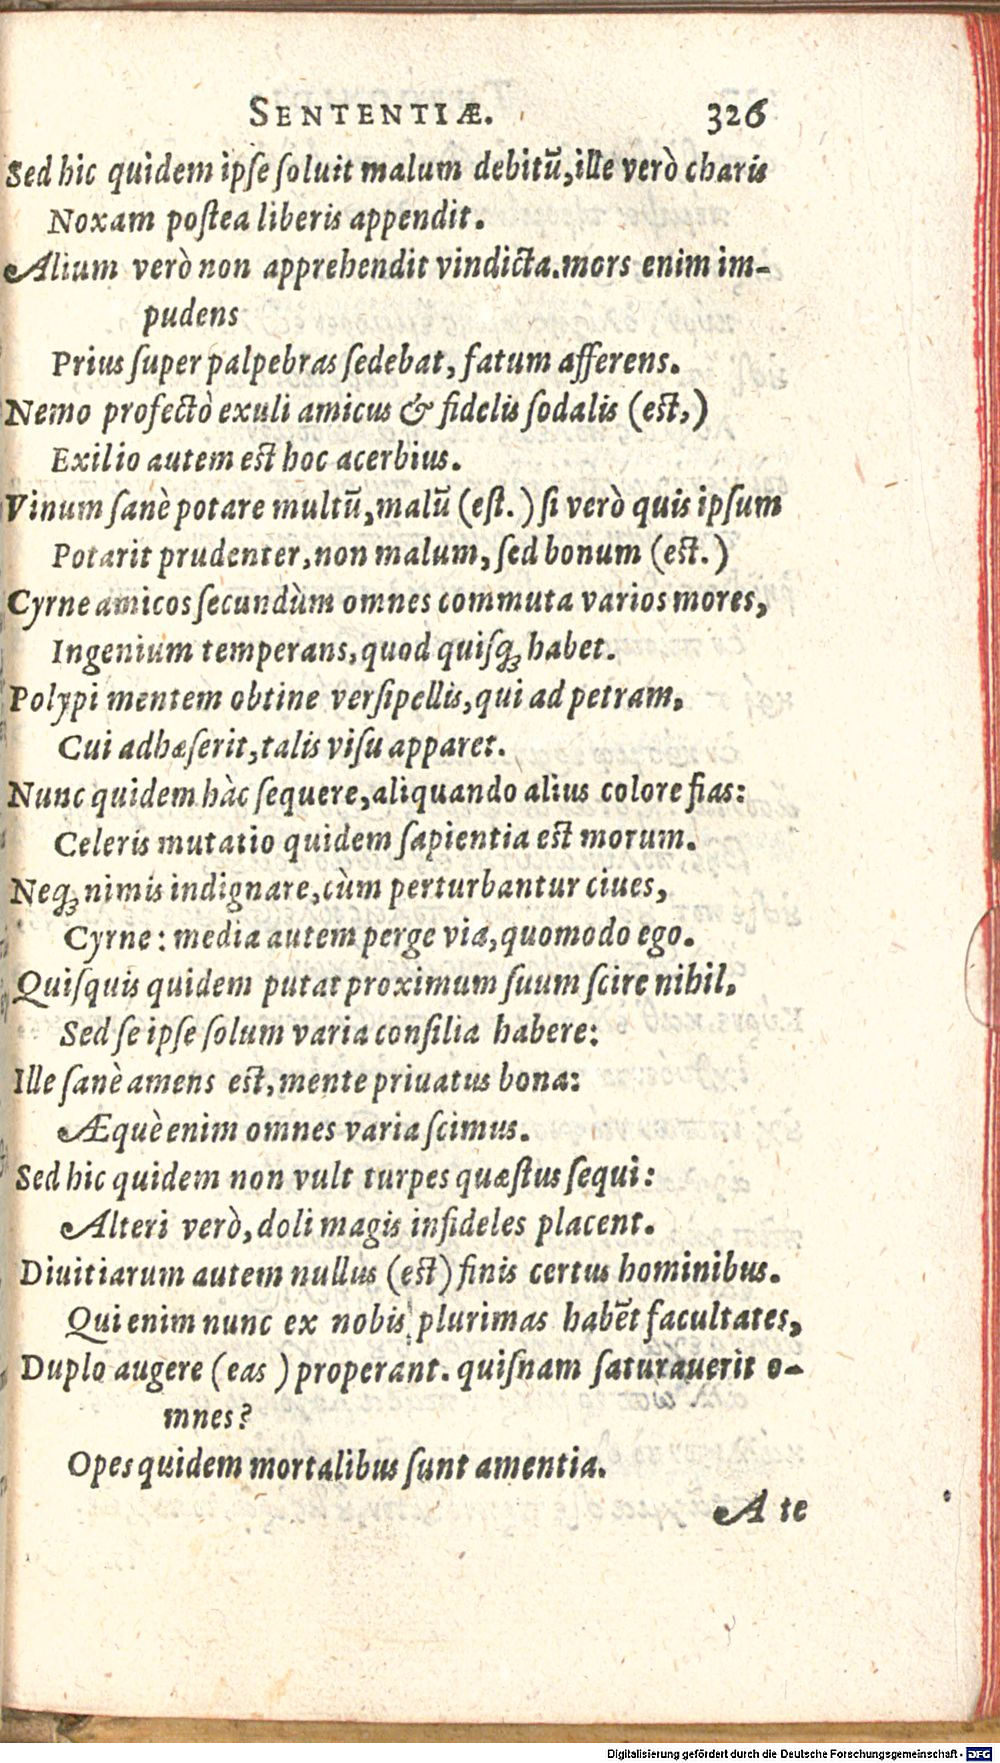 SENTENTIÆ. 326
Sed hic quidem ipſe ſoluit malum debitũ, ille verò charis
Noxam poſtea liberis appendit.
Alium verò non apprehendit vindicta. mors enim im-
pudens
Prius ſuper palpebras ſedebat, fatum afferens.
Nemo profectò exuli amicus & fidelis ſodalis (eſt,)
Exilio autem eſt hoc acerbius.
Vinum ſanè potare multũ, malũ (eſt.) ſi verò quis ipſum
Potarit prudenter, non malum, ſed bonum (eſt.)
Cyrne amicos ſecundùm omnes commuta varios mores,
Ingenium temperans, quod quiſq; habet.
Polypi mentem obtine verſipellis, qui ad petram,
Cui adhæſerit, talis viſu apparet.
Nunc quidem hàc ſequere, aliquando alius colore fias:
Celeris mutatio quidem ſapientia eſt morum.
Neq; nimis indignare, cùm perturbantur ciues,
Cyrne: media autem perge via, quomodo ego.
Quiſquis quidem putat proximum ſuum ſcire nihil,
Sed ſe ipſe ſolum varia conſilia habere:
Ille ſanè amens eſt, mente priuatus bona:
Æquè enim omnes varia ſcimus.
Sed hic quidem non vult turpes quæſtus ſequi:
Alteri verò, doli magis infideles placent.
Diuitiarum autem nullus (eſt) finis certus hominibus.
Qui enim nunc ex nobis plurimas habẽt facultates,
Duplo augere (eas) properant. quiſnam ſaturauerit o-
mnes?
Opes quidem mortalibus ſunt amentia.
A te
Digitalisierung gefördert durch die Deutsche Forschungsgemeinschaft - DFG